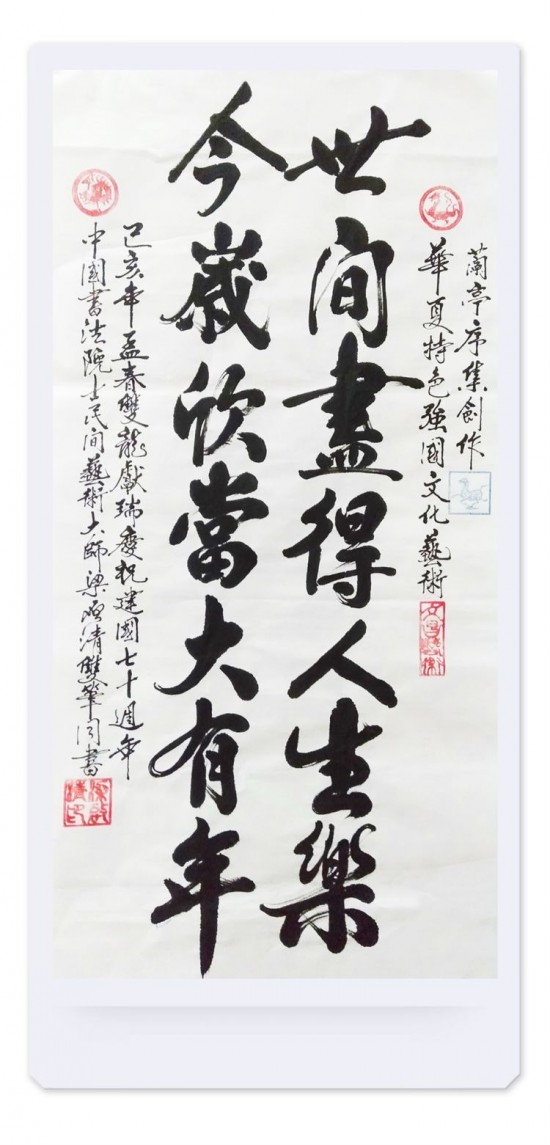 蘭亭序集創作
華夏特色強國文化藝術
世间盡得人生樂
今嵗欣當大有年
己亥年孟春雙龍獻瑞慶祝建國七十週年
中國書法院士民间藝術大師梁啟清雙筆同書